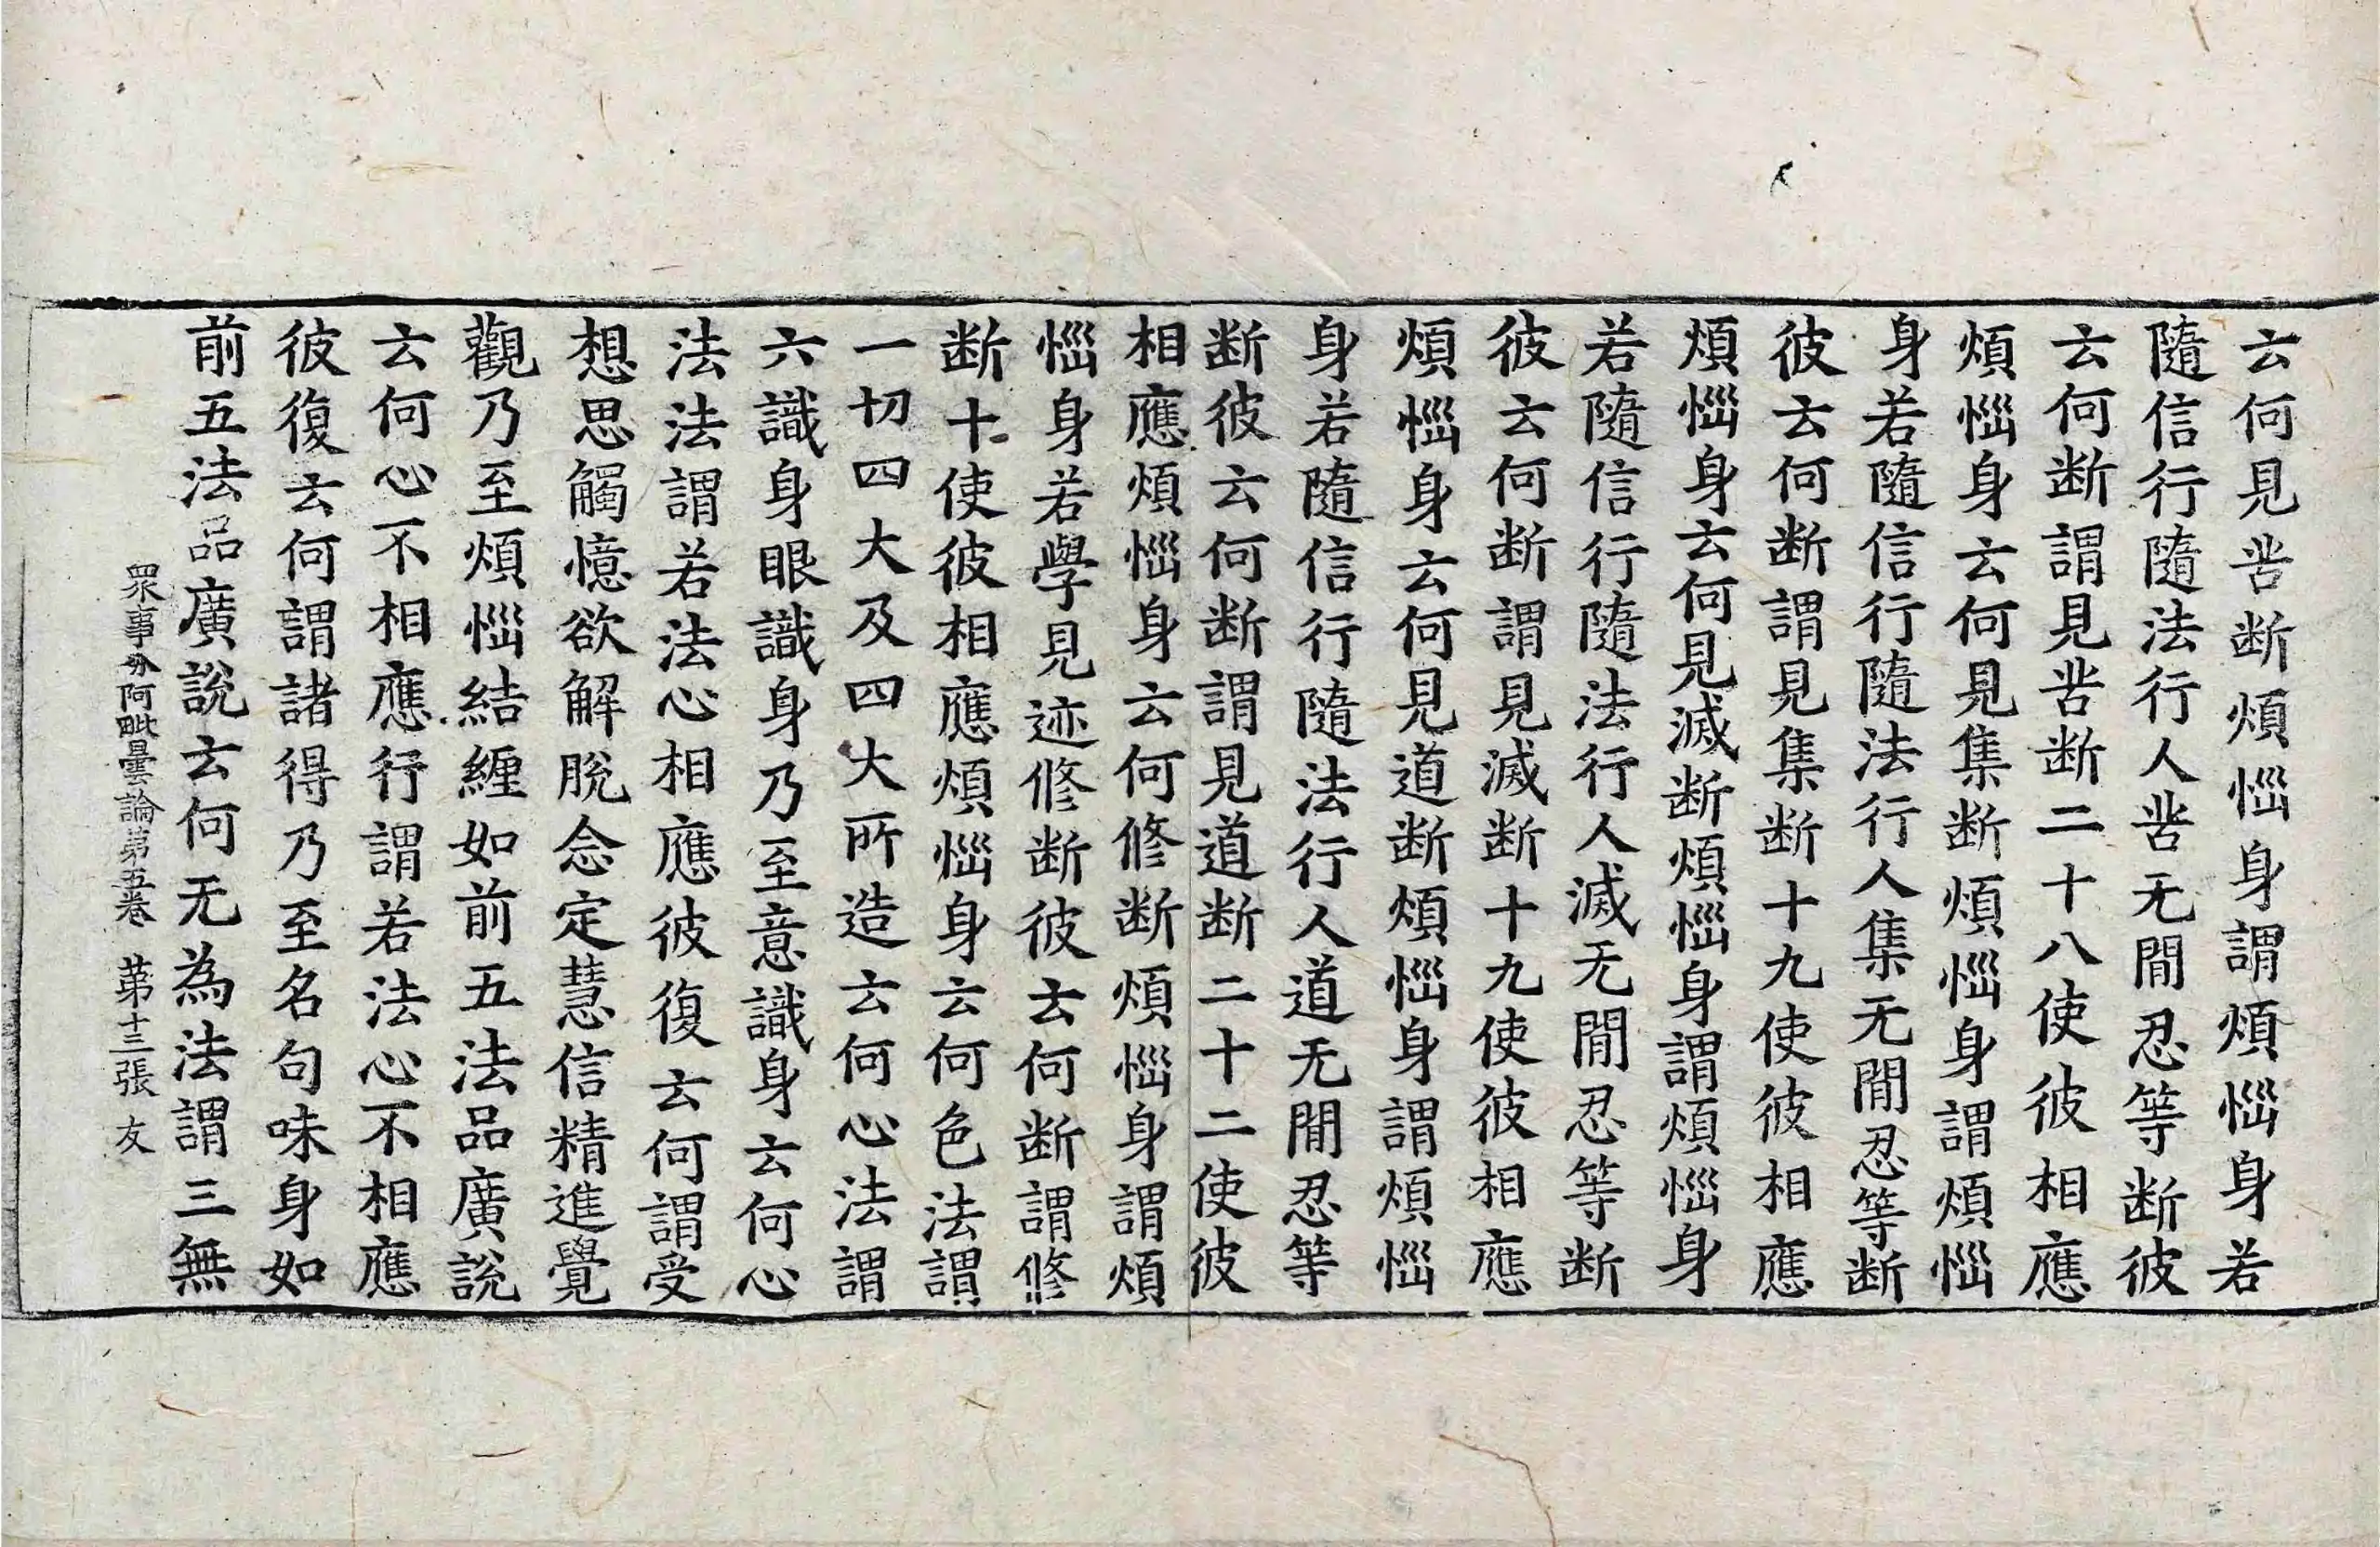 云何見苦断煩惱身謂煩惱身若
隨信行隨法行人苦无閒忍等断彼
云何断謂見苦断二十八使彼相應
煩惱身云何見集断煩惱身謂煩惱
身若隨信行隨法行人集无閒忍等断
彼云何断謂見集断十九使彼相應
煩惱身云何見滅断煩惱身謂煩惱身
若隨信行隨法行人滅无閒忍等断
彼云何断謂見滅断十九使彼相應
煩惱身云何見道断煩惱身謂煩惱
身若隨信行隨法行人道无閒忍等
断彼云何断謂見道断二十二使彼
相應煩惱身云何修断煩惱身謂煩
惱身若學見迹修断彼云何断謂修
断十使彼相應煩惱身云何色法謂
一切四大及四大所造云何心法謂
六識身眼識身乃至意識身云何心
法法謂若法心相應彼復云何謂受
想思觸憶欲解脫念定慧信精進覺
觀乃至煩惱結纏如前五法品廣說
云何心不相應行謂若法心不相應
彼復云何謂諸得乃至名句味身如
前五法品廣說云何无為法謂三無
眾事分阿毗曇論第五卷 第十三張 友